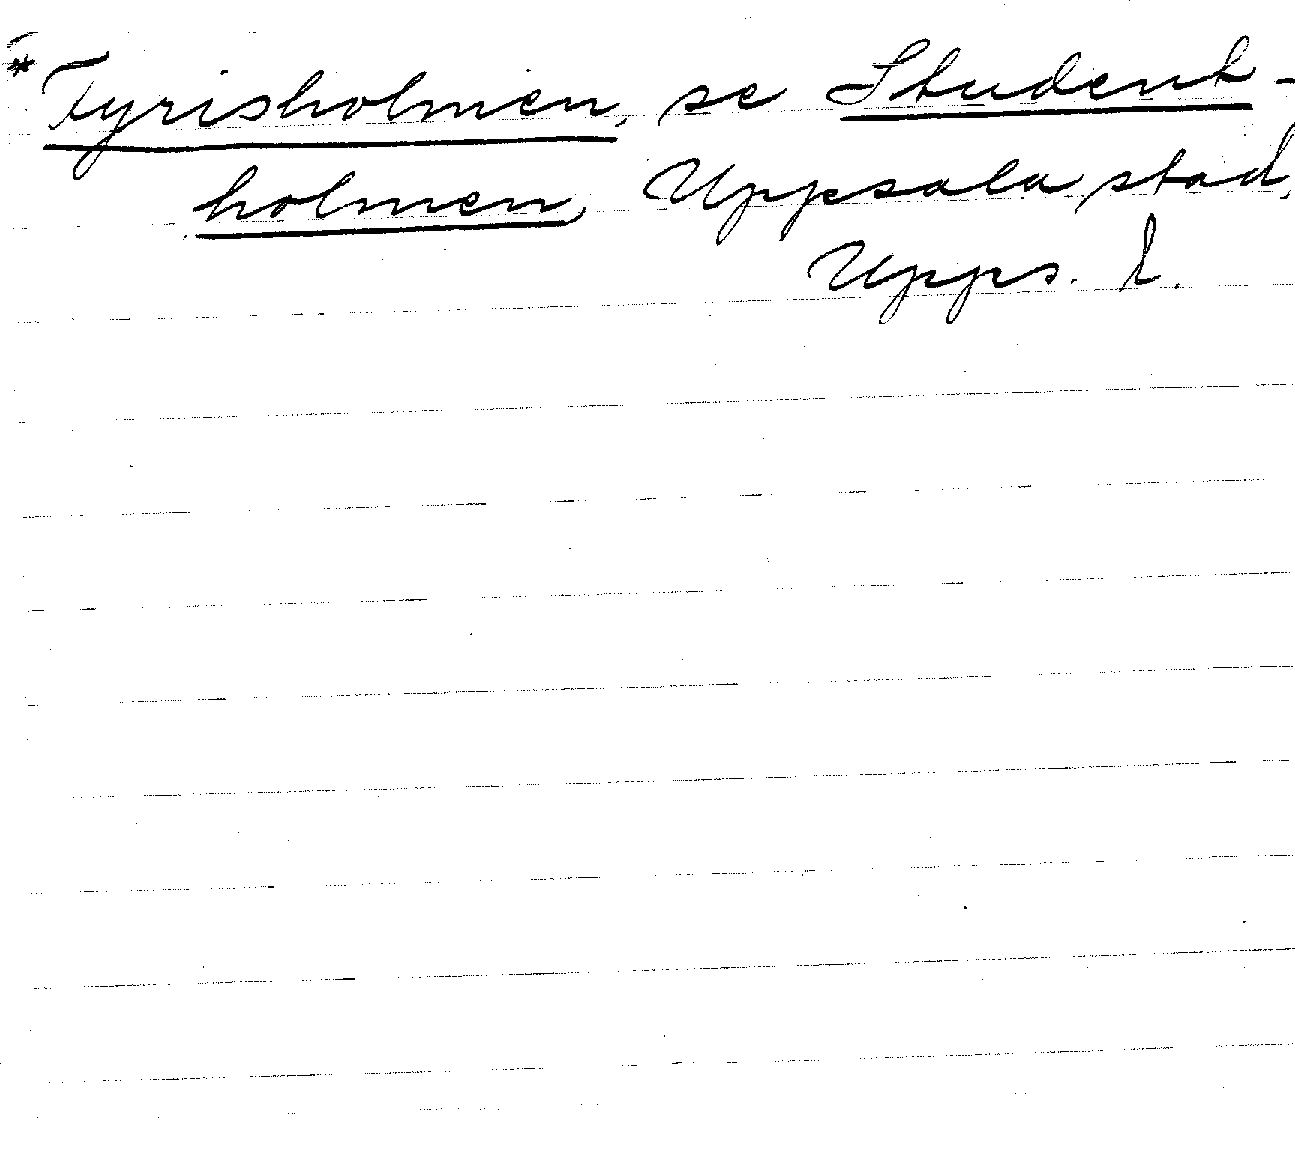 *Fyrisholmen, se Student-
holmen, Uppsala stad,
Upps. l.